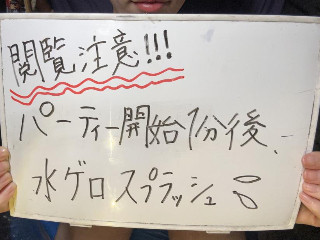 閲覧注意!!!
パーティー開始1分後、
水ゲロスプラッシュ